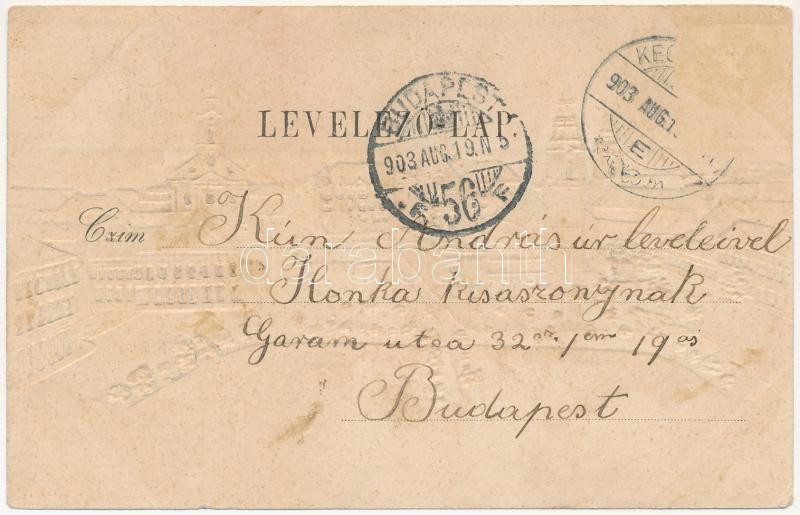 LEVELEZŐ-LAP.
BUDAPEST
903 AUG.19.N 5
56
KEC
903 AUG.1
E
Czim
Kún András úr leveleivel
Ilonka kisaszonynak
Garam utca 32 sz. 1 em 19 as
Budapest
darabanth